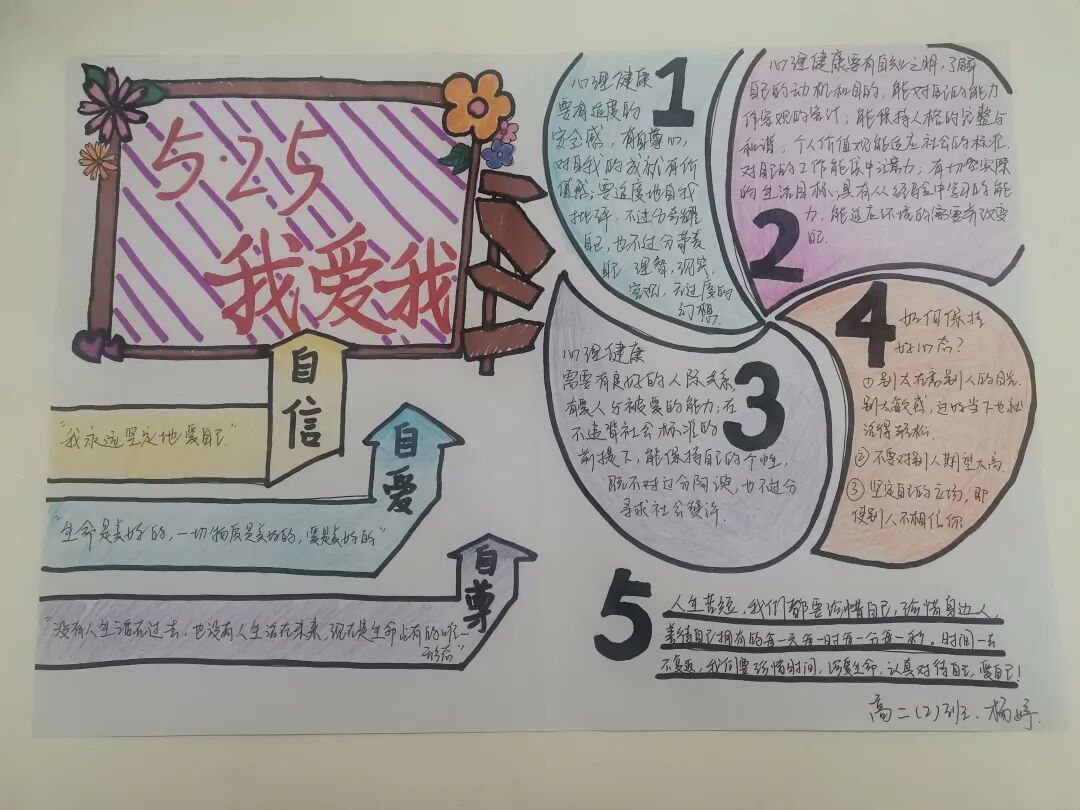 5·25
我爱我
自信
"我永远坚定地爱自己"
自爱
"生命是美好的,一切物质是美好的,爱是美好的"
自尊
"没有人生活在过去,也没有人生活在未来,现在是生命占有的唯一
形态"
1
心理健康
要有适度的
安全感,有自尊心,
对自我的成就有价
值感;要适度地自我
批评,不过分夸耀
自己,也不过分苛责
自己.理智,现实,
客观,不过度的
幻想.
2
心理健康要有自知之明,了解
自己的动机和目的,能对自己的能力
作客观的估计;能保持人格的完整与
和谐,个人价值观能适应社会的标准,
对自己的工作能集中注意力;有切合实际
的生活目标;具有从经验中学习的能
力,能适应环境的需要改变
自己.
3
心理健康
需要有良好的人际关系,
有爱人与被爱的能力;在
不违背社会标准的
前提下,能保持自己的个性,
既不对过分阿谀,也不过分
寻求社会赞许.
4
如何保持
好心态?
①别太在意别人的目光.
别太敏感,过好当下也就
活得轻松.
②不要对别人期望太高.
③坚定自己的立场,即
使别人不相信你
5
人生苦短,我们都要珍惜自己,珍惜身边人,
善待自己拥有的每一天每一时每一分每一秒。时间一去
不复返,我们要珍惜时间,珍爱生命,认真对待自己,爱自己!
高二(2)班.杨婷.